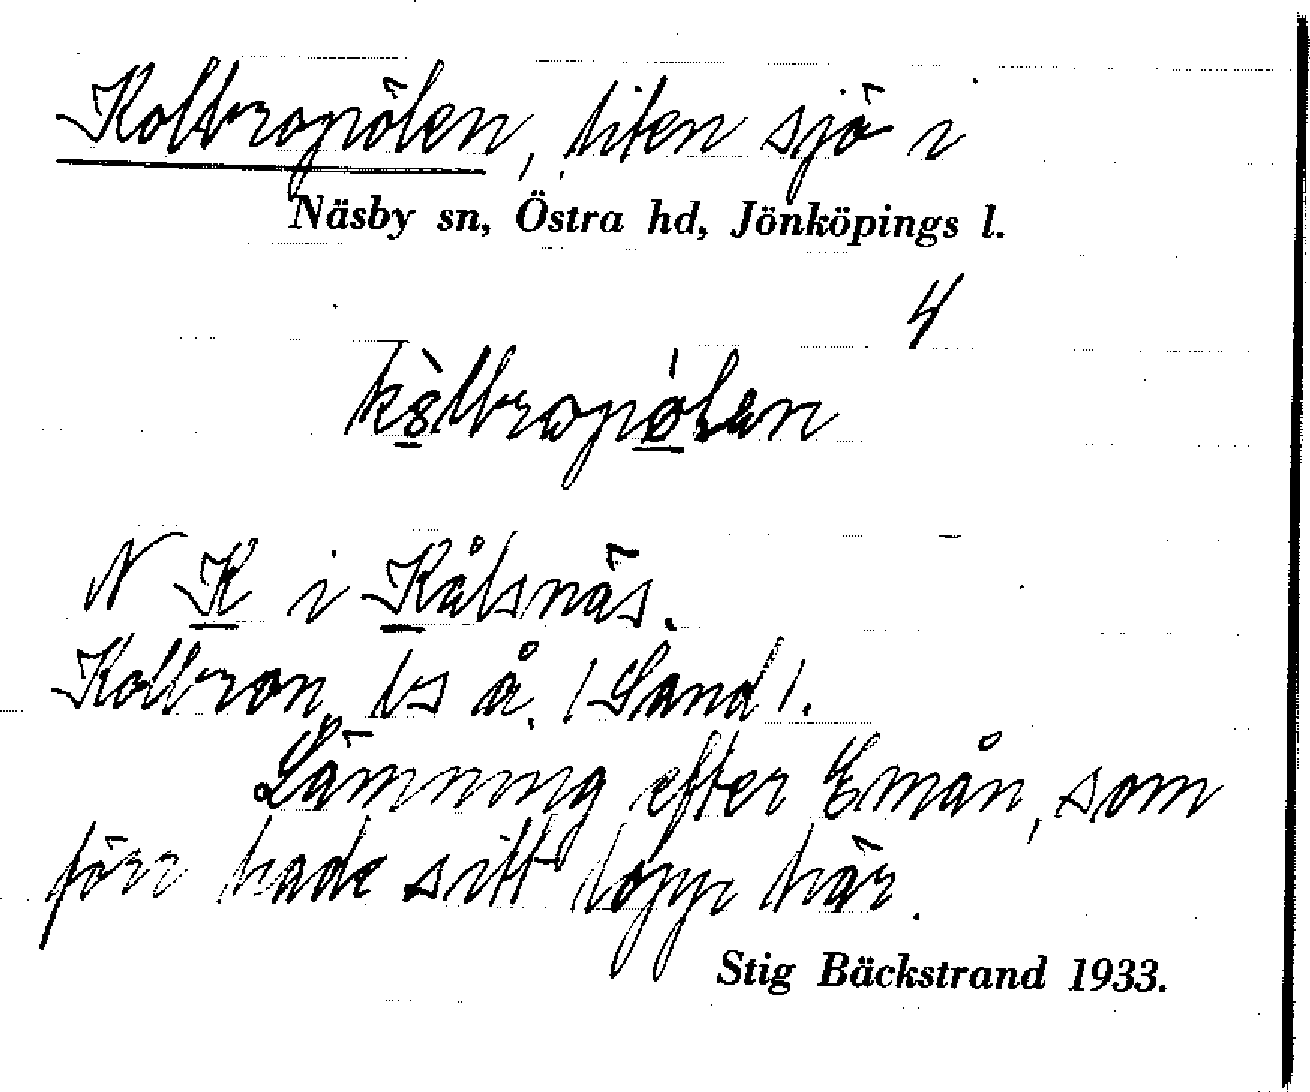 Kolbropölen, liten sjö i
Näsby sn, Östra hd, Jönköpings l.
4
N K i Kålsnäs.
Kolbron, bs å. (Sand).
Lämning efter Emån, som
förr hade sitt lopp här.
Stig Bäckstrand 1933.